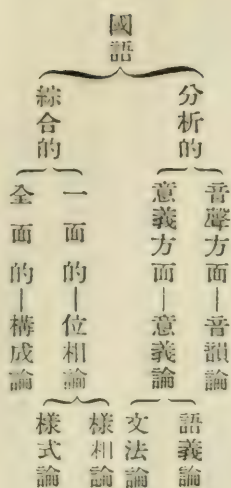 國語
分析的
音聲方面—音韻論
意義方面—意義論
語義論
文法論
綜合的
一面的—位相論
様相論
様式論
全面的—構成論